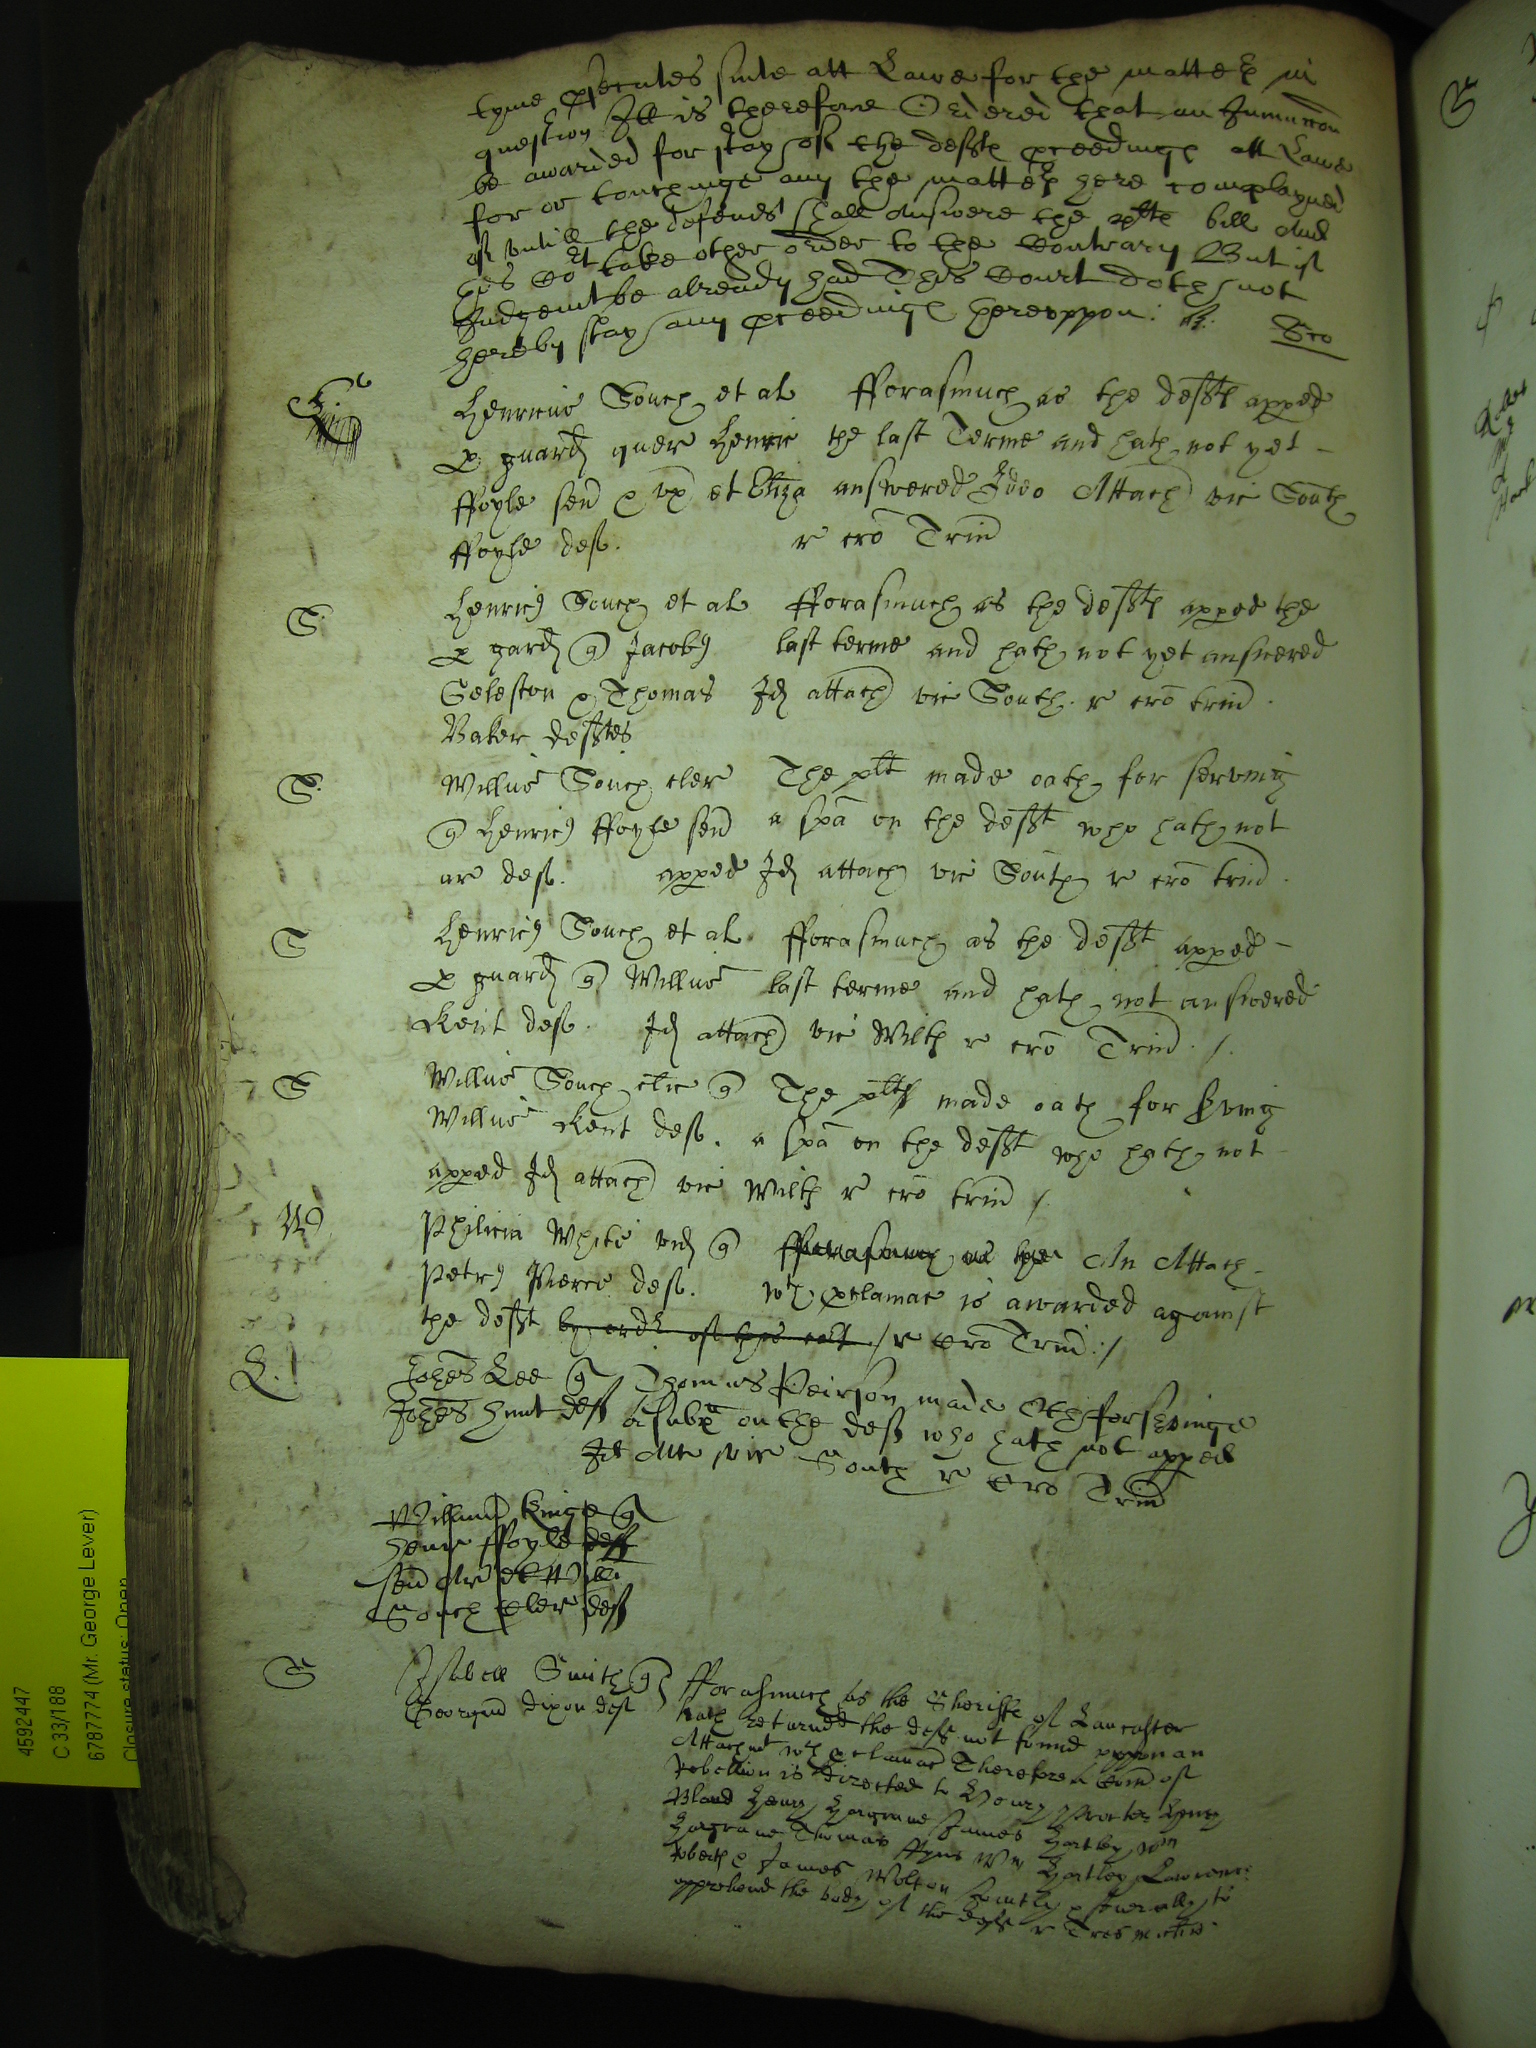 tyme psecutes suite att Lawe for the matters in
question Itt is therefore Ordered that an Iniunccon
be awarded for stay of the defts pceedings att Lawe
for or touchinge any the matters here complayned
of untill the defendt shall answere the plts bill And
this Cort take other order to the Contrary But if
Judgemt be already had This Court doth not
hereby stay any pceedings thereuppon.
S
Henricus Souch et al fforasmuch as the deftes apped
p guard quer Henric the last Terme and hath not yet
ffoyle sen p ux et Eliza answered Ideo Attach vic South
ffoyle def. r cro Trin
S. Henric9 Souch et al fforasmuch as the defts apped the
p gard q Jacob9 last terme and hath not yet answered
Geleston p Thomas Id attach vic South. r cro trin.
Baker deftes
S. Willus Souch cler The plt made oath for serving
q Henric9 ffoyle sen a spa on the deft who hath not
ar def. apped Id attach vic South r cro trin.
S Henric9 Souch et al. fforasmuch as the deft apped
p guard q Willus last terme and hath not answered
Kent def. Id attach vic Wilts r cro Trin./.
S Willus Souch clic q The plts made oath for sving
Willus Kent def. a spa on the deft who hath not
apped Id attach vic Wilts r cro trin /.
W. White vid q fforasmuch as the An Attach
Petr9 Pierce def. wth pclamac is awarded against
the deft by ordr of this cort / r cro Trin:/
L. Johes Lee q Thomas Peirson made Oth for svinge
Johes Hunt def a subp on the def who hath not apped
Id Att vic South r Cro Trin
Willum Kinge q
Henr ffoyle deff
sen Ar et Willi
Souch Cler def
S Isabell Smith q fforasmuch as the Sheriffe of Lancaster
Georgiu Dixon def hath returned the def not found uppon an
Attachmt wth pclamac Therefore a Com of
Rebellion is directed to Henry
Bland Henry Hargrave James Hartley Wm
Hargrave Thomas Wm Hartley Lawrence
Roberts p James Wolton Jointly p severally to
apprehend the body of the deft r Tres